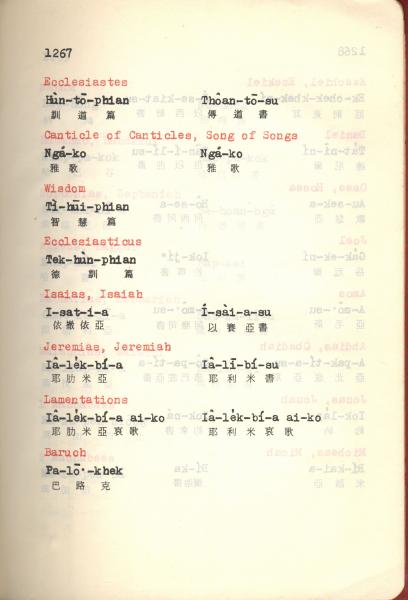 1267
Ecclesiastes
Hùn-tō-phian Thoân-tō-su
訓道篇 傳道書
Canticle of Canticles, Song of Songs
Ngá-ko Ngá-ko
雅歌 雅歌
Wisdom
Tì-hūi-phian
智慧篇
Ecclesiasticus
Tek-hùn-phian
德訓篇
Isaias, Isaiah
I-sat-i-a Í-sài-a-su
依撒依亞 以賽亞書
Jeremias, Jeremiah
Iâ-le̍k-bí-a Iâ-lī-bí-su
耶肋米亞 耶利米書
Lamentations
Iâ-le̍k-bí-a ai-ko Iâ-le̍k-bí-a ai-ko
耶肋米亞哀歌 耶利米哀歌
Baruch
Pa-lō·-khek
巴路克